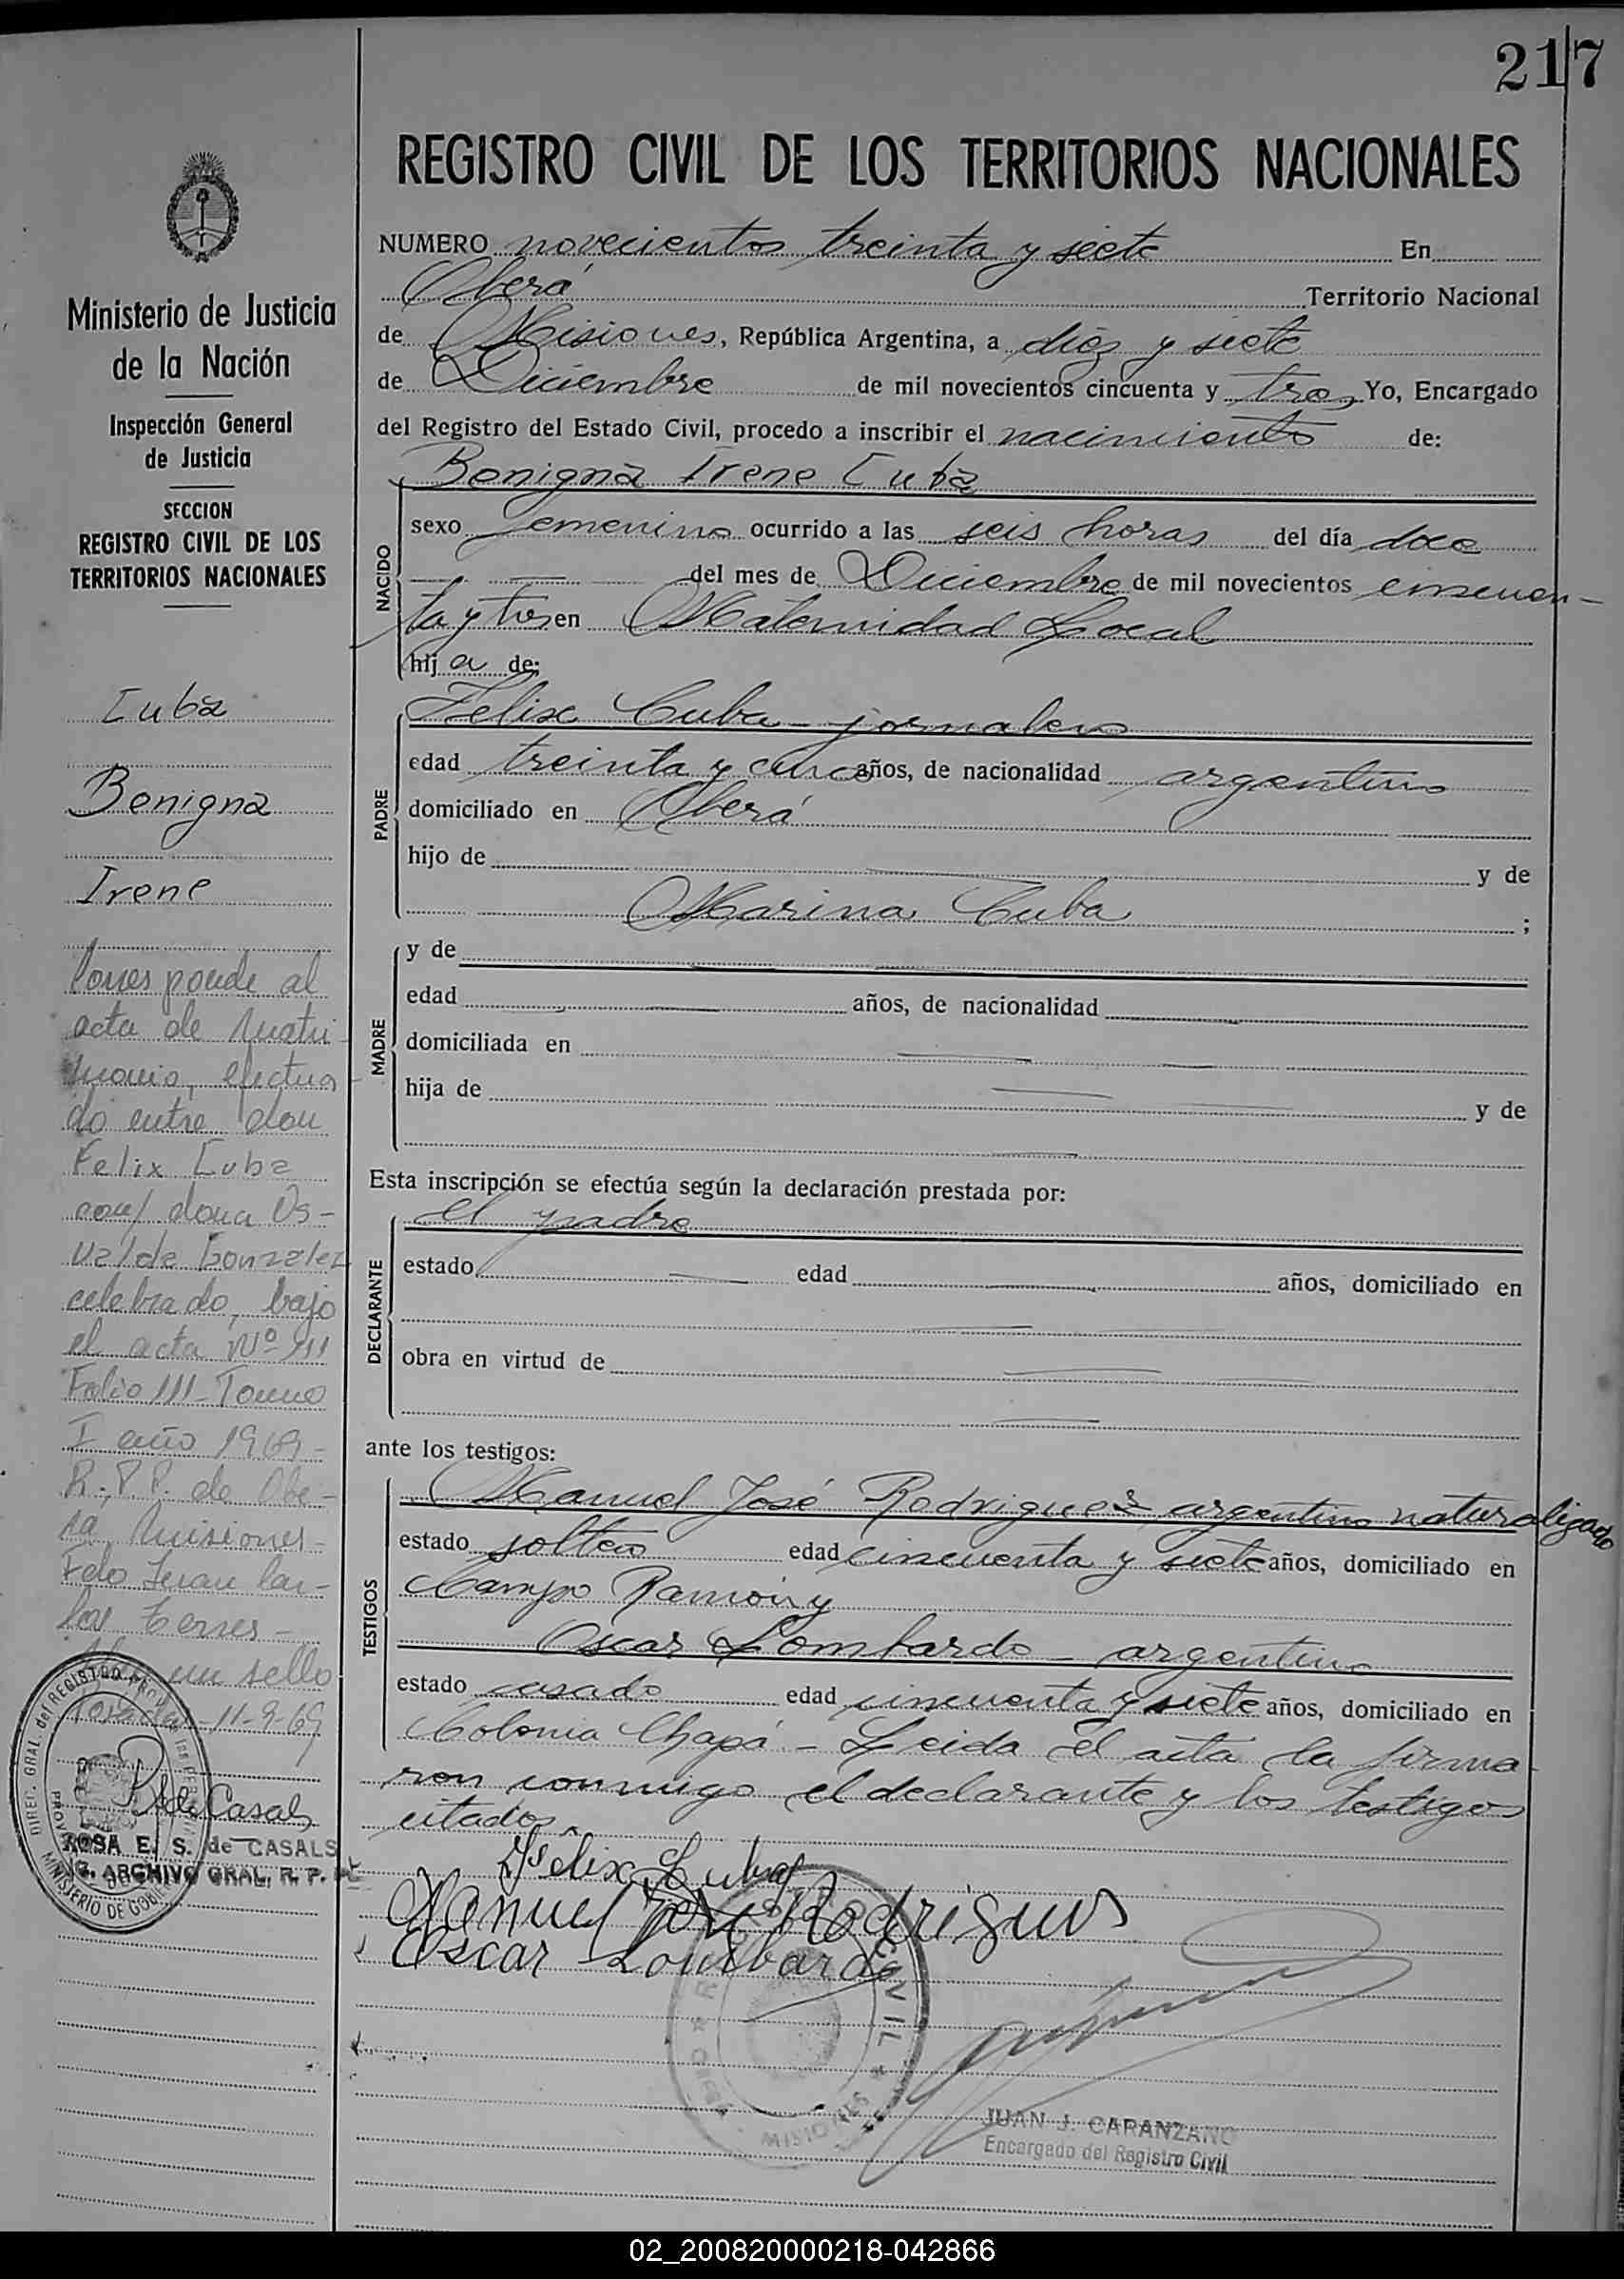 217
REGISTRO CIVIL DE LOS TERRITORIOS NACIONALES
NUMERO novecientos treinta y siete En
Oberá Territorio Nacional
de Misiones, República Argentina, a diez y siete
de Diciembre de mil novecientos cincuenta y tres, Yo, Encargado
del Registro del Estado Civil, procedo a inscribir el nacimiento de:
Benigna Irene Cuba
NACIDO
sexo femenino ocurrido a las seis horas del día doce
del mes de Diciembre de mil novecientos cincuen-
ta y tres en Maternidad Local
hija de:
PADRE
Felix Cuba - jornalero
edad treinta y cinco años, de nacionalidad argentino
domiciliado en Oberá
hijo de y de
Marina Cuba ;
MADRE
y de
edad años, de nacionalidad
domiciliada en
hija de y de
Esta inscripción se efectúa según la declaración prestada por:
DECLARANTE
el padre
estado edad años, domiciliado en
obra en virtud de
ante los testigos:
TESTIGOS
Manuel José Rodriguez argentino naturalizado
estado soltero edad cincuenta y siete años, domiciliado en
Campo Ramón y
Oscar Lombardo - argentino
estado casado edad cincuenta y siete años, domiciliado en
Colonia Chapá - Leida el acta la firma-
ron conmigo el declarante y los testigos
citados.
Félix Cuba
Manuel José Rodrigues
Oscar Lombardo
CIVIL
MISIONES
JUAN J. CARANZANO
Encargado del Registro Civil
Ministerio de Justicia
de la Nación
Inspección General
de Justicia
SECCION
REGISTRO CIVIL DE LOS
TERRITORIOS NACIONALES
Cuba
Benigna
Irene
Corresponde al
acta de matri-
monio, efectua-
do entre don
Felix Cuba
con/ doña Os-
valda Gonzalez
celebrado, bajo
el acta Nº 111
Folio 111 - Tomo
I año 1969 -
R.P.P. de Obe-
rá Misiones -
Fdo Juan Car-
los
un sello
Posadas - 11-9-69
de Casals
ROSA E. S. de CASALS
ARCHIVO GRAL. R. P.
DIREC. GRAL del REGISTRO PROV. de las PERSONAS
MINISTERIO DE GOBIERNO
02_200820000218-042866